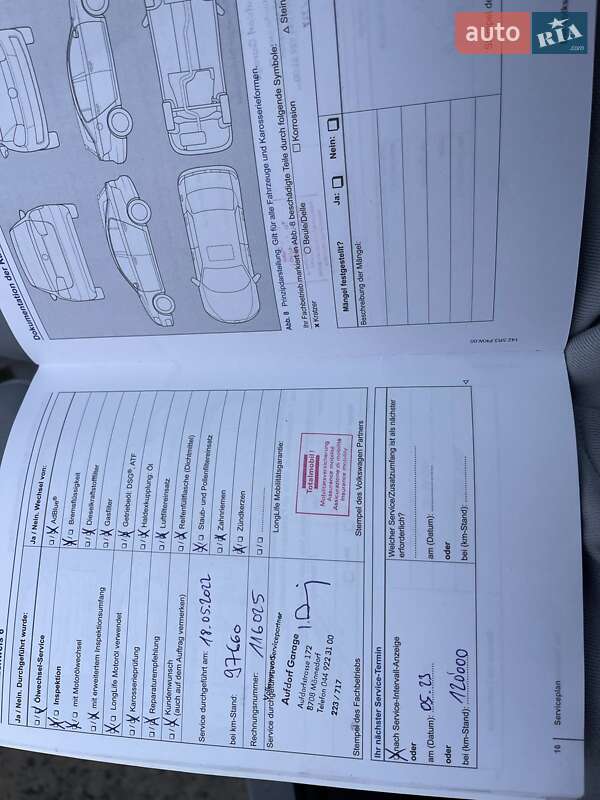 auto RIA.com
Dokumentation der
Abb. 8 Prinzipdarstellung: Gilt für alle Fahrzeuge und Karosserieformen.
Ihr Fachbetrieb markiert in Abb. 8 beschädigte Teile durch folgende Symbole:
x Kratzer
○ Beule/Delle
□ Korrosion
△ Stein
Mängel festgestellt?
Ja: □
Nein: □
Beschreibung der Mängel:
142.5R3.PKW.00
Ja / Nein. Durchgeführt wurde:
□ / □ Ölwechsel-Service
□ / □ Inspektion
□ / □ mit Motorölwechsel
□ / □ mit erweitertem Inspektionsumfang
□ / □ LongLife Motoröl verwendet
□ / □ Karosserieprüfung
□ / □ Reparaturempfehlung
□ / □ Kundenwunsch
(auch auf dem Auftrag vermerken)
Service durchgeführt am: 18.05.2022
bei km-Stand: 97660
Rechnungsnummer: 116025
Service durchgeführt
Servicepartner
Aufdorf Garage
Aufdorfstrasse 172
8708 Männedorf
Telefon 044 922 31 00
223 / 717
Stempel des Fachbetriebs
Ja / Nein. Wechsel von:
□ / □ AdBlue®
□ / □ Bremsflüssigkeit
□ / □ Dieselkraftstofffilter
□ / □ Gasfilter
□ / □ Getriebeöl: DSG®, ATF
□ / □ Haldexkupplung: Öl
□ / □ Luftfiltereinsatz
□ / □ Reifenfüllflasche (Dichtmittel)
□ / □ Staub- und Pollenfiltereinsatz
□ / □ Zahnriemen
□ / □ Zündkerzen
□ / □
LongLife Mobilitätsgarantie:
Totalmobil!
Mobilitätsversicherung
Assurance mobilité
Assicurazione di mobilità
Insurance mobility
Stempel des Volkswagen Partners
Ihr nächster Service-Termin
□ nach Service-Intervall-Anzeige
oder
am (Datum): 05.23
oder
bei (km-Stand): 120'000
Welcher Service/Zusatzumfang ist als nächster
erforderlich?
am (Datum):
oder
bei (km-Stand):
10 Serviceplan